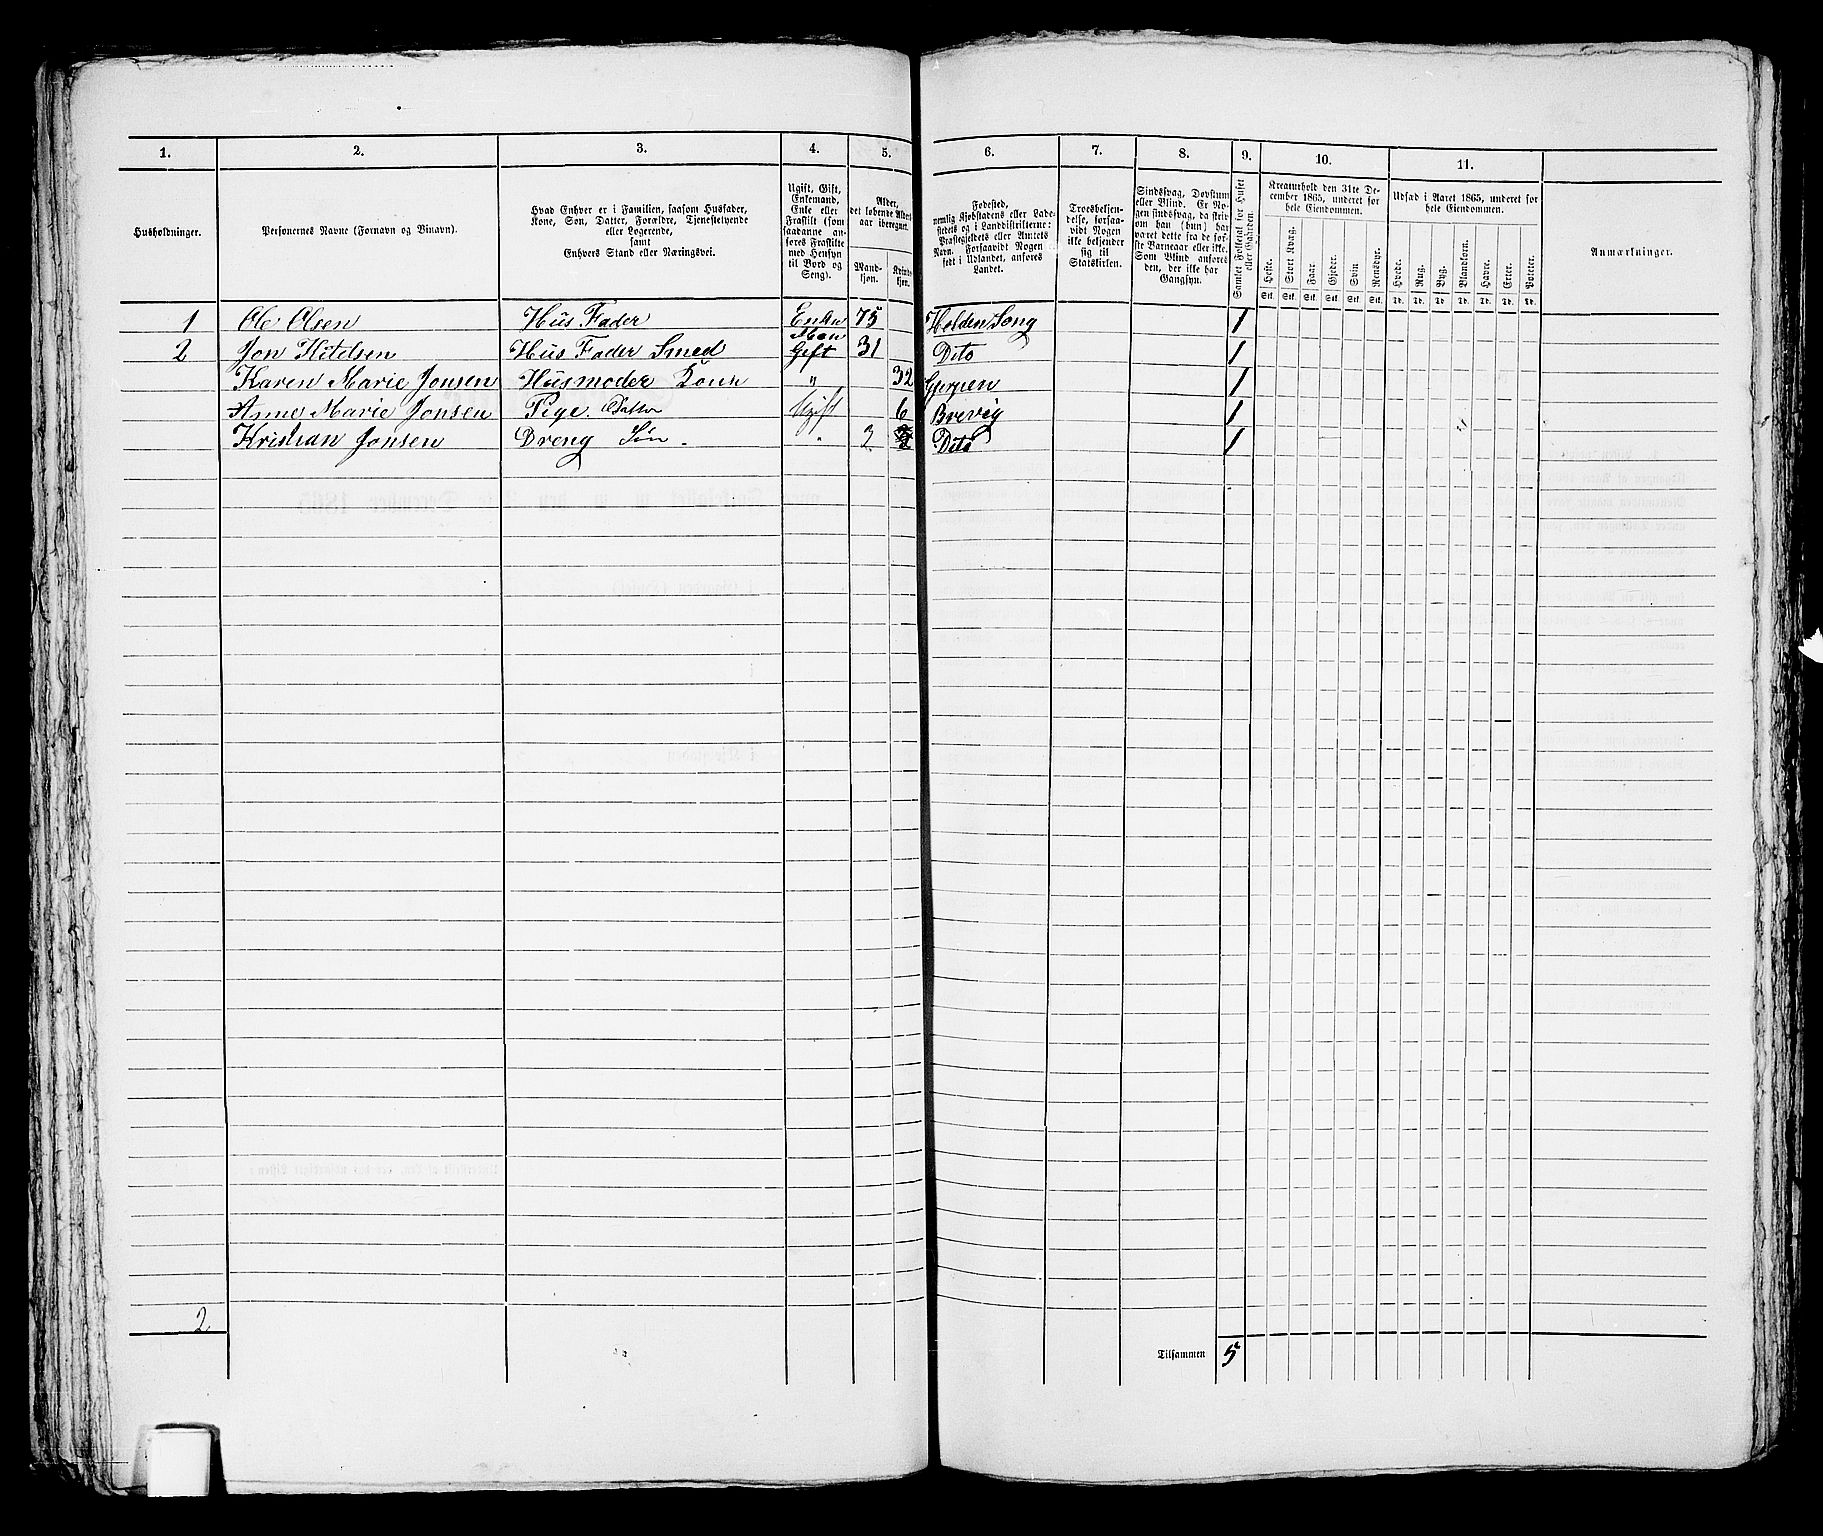 1. 2. 3. 4. 5. 6. 7. 8. 9. 10. 11.
Husholdninger.
Personernes Navne (Fornavn og Binavn).
Hvad Enhver er i Familien, saasom Husfader,
Kone, Søn, Datter, Forældre, Tjenestetyende
eller Logerende,
samt
Enhvers Stand eller Næringsvei.
Ugift, Gift,
Enkemand,
Enke eller
Fraskilt (som
saadanne an-
føres Fraskilte
med Hensyn
til Bord og
Seng).
Alder,
det løbende Alders-
aar iberegnet.
Mand-
kjøn.
Kvinde-
kjøn.
Fødested,
nemlig Kjøbstadens eller Lade-
stedets og i Landdistrikterne:
Præstegjeldets eller Annexets
Navn. Forsaavidt Nogen er
født i Udlandet, anføres
Landet.
Troesbekjen-
delse, forsaa-
vidt Nogen
ikke bekjender
sig til
Statskirken.
Sindssvag, Døvstum
eller Blind. Er No-
gen sindssvag, da skriv
om han (hun) har
været dette fra de før-
ste Barneaar eller ikke.
Som Blind anføres
den, der ikke har
Gangsyn.
Samlet Folketal for Huset
eller Gaarden.
Kreaturhold den 31te De-
cember 1865, underet for
hele Eiendommen.
Heste. Stort Kvæg. Faar. Gjeder. Svin Rensdyr.
Stk. Stk. Stk. Stk. Stk. Stk.
Udsæd i Aaret 1865, underet for
hele Eiendommen.
Hvede. Rug. Byg. Blandkorn. Havre. Erter. Poteter.
Td. Td. Td. Td. Td. Td. Td.
Anmærkninger.
1 Ole Olsen Hus Fader Enke Man 75 Holden Song 1
2 Jon Kitelsen Hus Fader Smed Gift 31 Dito 1
Karen Marie Jonsen Husmoder Kone " 32 Gjerpen 1
Anne Marie Jonsen Pige. Datter Ugift 6 Brevig 1
Kristian Jonsen Dreng Søn. " 2 Dito 1
2
Tilsammen 5